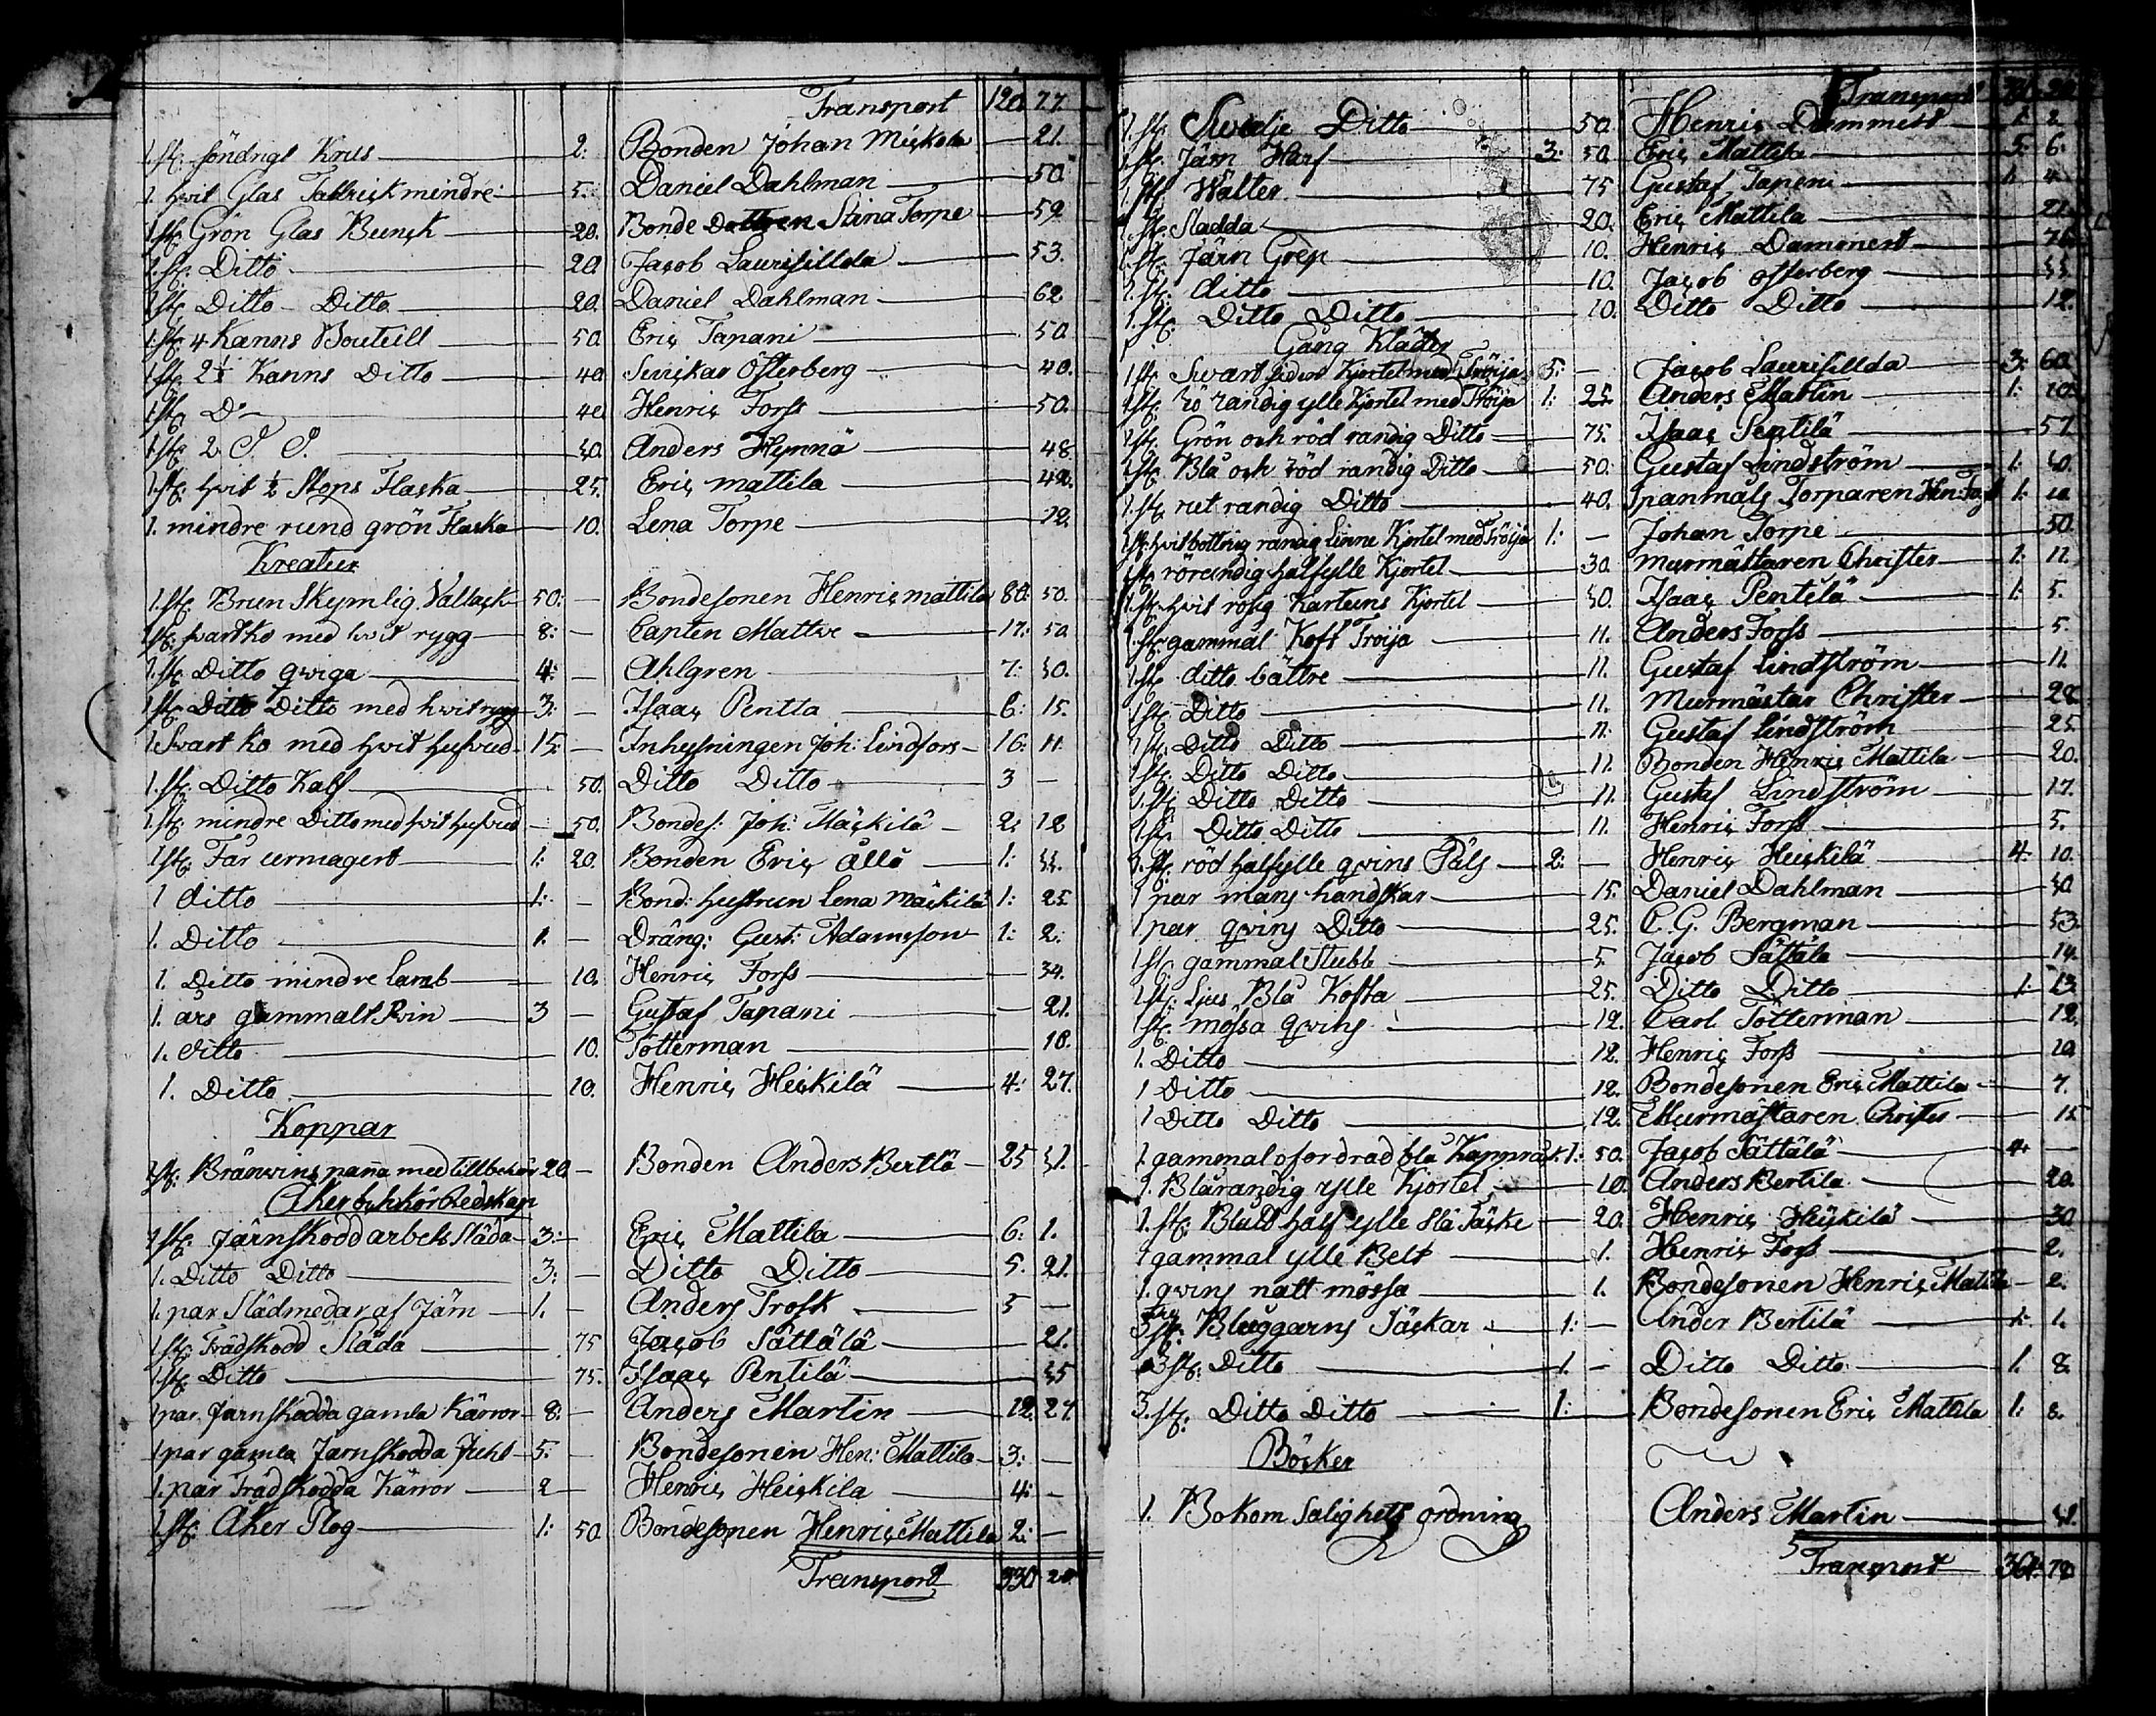 Transport 120. 77.
1. st. söndrigt Krus 2: Bonden Johan 21.
1. hvit Glas Tallrick mindre 5. Daniel Dahlman 50
1. st. Grön Glas 20. Bonde Dottren Stina Torpe 59
1. st. Ditto 20. Jacob Laurisillda 53.
1. st. Ditto Ditto 20. Daniel Dahlman 62
1. st. 4 Kanns Bouteill 50. Eric Tapani 50
1. st. 2½ Kanns Ditto 40. Österberg 40.
1. st. Do 40 Henric Forss 50.
1. st. 2 Anders Hynnä 48
1. st. hvit ½ Stops Flaska 25. Eric Mattila
1. mindre rund grön Flaska 10. Lena Torpe 12.
Kreatur
1. st. Brun Skymlig Vallack 50: — Bondesonen Henric Mattila 80. 50.
1. st. svart Ko med hvit rygg 8: — Capten 17: 50
1. st. Ditto qwiga 4: — Ahlgren 7: 50.
1. st. Ditto Ditto med hwit rygg 3: — Isaac Pentta 6: 15.
1 Svart Ko med hvit hufvud 15: — Inhysningen Joh: Lindfors 16: 11.
1. st. Ditto Kalf 50. Ditto Ditto 3 —
1. st. mindre Ditto med hvit hufvud 50. Bondes: Joh: Mäckilä 2: 12
1 st. Får urmagert 1: 20. Bonden Eric Ållo 1:
1 ditto 1: — Bond: hustrun Lena Mäckilä 1: 25
1. Ditto 1. — Dräng: Gust: Adamsson 1: 2:
1. Ditto mindre lamb 10. Henric Forss 34.
1. års gammalt Svin 3 — Gustaf Tapani — 21.
1. ditto 10. Totterman 18.
1. Ditto 10. Henric Heickilä 4: 27.
Koppar
1. st: Bränwins panna med tillbehör 20 — Bonden Anders Bertlä 25 51.
Åker och Kör Redskap
1 st. Järnskodd arbets Släda 3: — Eric Mattila 6: 1.
1. Ditto Ditto 3: — Ditto Ditto 5. 21.
1. par Slädmedar af Järn 1. — Anders Trosk 5 —
1 st. Trädskodd Släda 75 Jacob Sättälä 21.
1 st. Ditto 75. Isaac Pentilä
1 par Järnskodda gamla Kärror 8: — Anders Martin 12. 27.
1 par gamla Jarnskodda 5. — Bondesonen Hen: Mattila 3: —
1. par Trädskodda Kärror 2 — Henric Heickila 4: —
1. st. Åker Plog 1: 50 Bondesonen Henric Mattila 2: —
Transport 330 20
Transport
1. st. Ditto 50. Henric Dammert 1: 2
1. st. Järn Harf 3: 50. Eric Mattila 5: 6:
1. st. Wälter 75 Gustaf Tapani 1: 4
1. st. Sladda 20. Eric Mattila 21.
1. st. Järn Grep 10. Henric Dammert 76.
1. st. ditto 10. Jacob Österberg
1. st. Ditto Ditto 10. Ditto Ditto 12.
Gång Kläder
1 st. Swart Kjortel med Tröija 5: — Jacob Laurisillda 3: 60
1 st. randig ylle Kjortel med Tröija 1: 25 Anders Martin 1: 10.
1 st. Grön och röd randig Ditto 75. Isaac Pentilä 57.
1 st. Blå och röd randig Ditto 50. Gustaf Lindström 1: 50.
1. st. rut randig Ditto 40. Spanmåls Torparen Hen: 1:
1 st. hvitbottnig randig linne Kjortel med Tröija 1: — Johan Torpe 50.
1 st. halfylle Kjortel 30. Murmästaren Christer 1: 11.
1 st. hvit rosig Kartuns Kjortel 50. Isaac Pentilä 1: 5.
1 st. gammal Koft Tröija 11. Anders Forss 5.
1 st. ditto bättre 11. Gustaf Lindström 11.
1 st. Ditto 11. Murmästar Christer 28
1 st. Ditto Ditto 11. Gustaf Lindström 25.
1 st. Ditto Ditto 11. Bonden Henric Mattila 20.
1. st. Ditto Ditto 11. Gustaf Lindström 17.
1 st. Ditto Ditto 11. Henric Forss 5.
1. st. röd halfylle qvins Päls 2: — Henric Heickilä 4: 10.
1 par mans handskar 15. Daniel Dahlman 50
1 par qvins Ditto 25. C. G. Bergman 53.
1 st. gammal Stubb 5 Jacob Sättälä 14.
1 st. Ljus Blå Kofta 25. Ditto Ditto 1: 13
1 st. mössa qvins 12. Carl Totterman 12.
1. Ditto 12. Henric Forss 10
1 Ditto 12. Bondesonen Eric Mattila 7.
1 Ditto Ditto 12. Murmästaren Christer 15
1. gammal ofordrad blå Kappråk 1: 50. Jacob Sättälä 4: —
1. Blårandig ylle Kjortel 10. Anders Bertila 20.
1. st. half ylle 20. Henric Heickilä 30
1 gammal ylle Belt 1. Henric Forss 2.
1. qvins natt mössa 1. Bondesonen Henric Mattila 2.
3 st. Blaggarns Säckar 1: — Ander Bertilä 1: 1.
3 st: Ditto 1. — Ditto Ditto 1. 8
3. st: Ditto Ditto 1: Bondesonen Eric Mattila 1: 8.
Böcker
1. Bok om Salighets ordning Anders Martin
Transport 361: 72